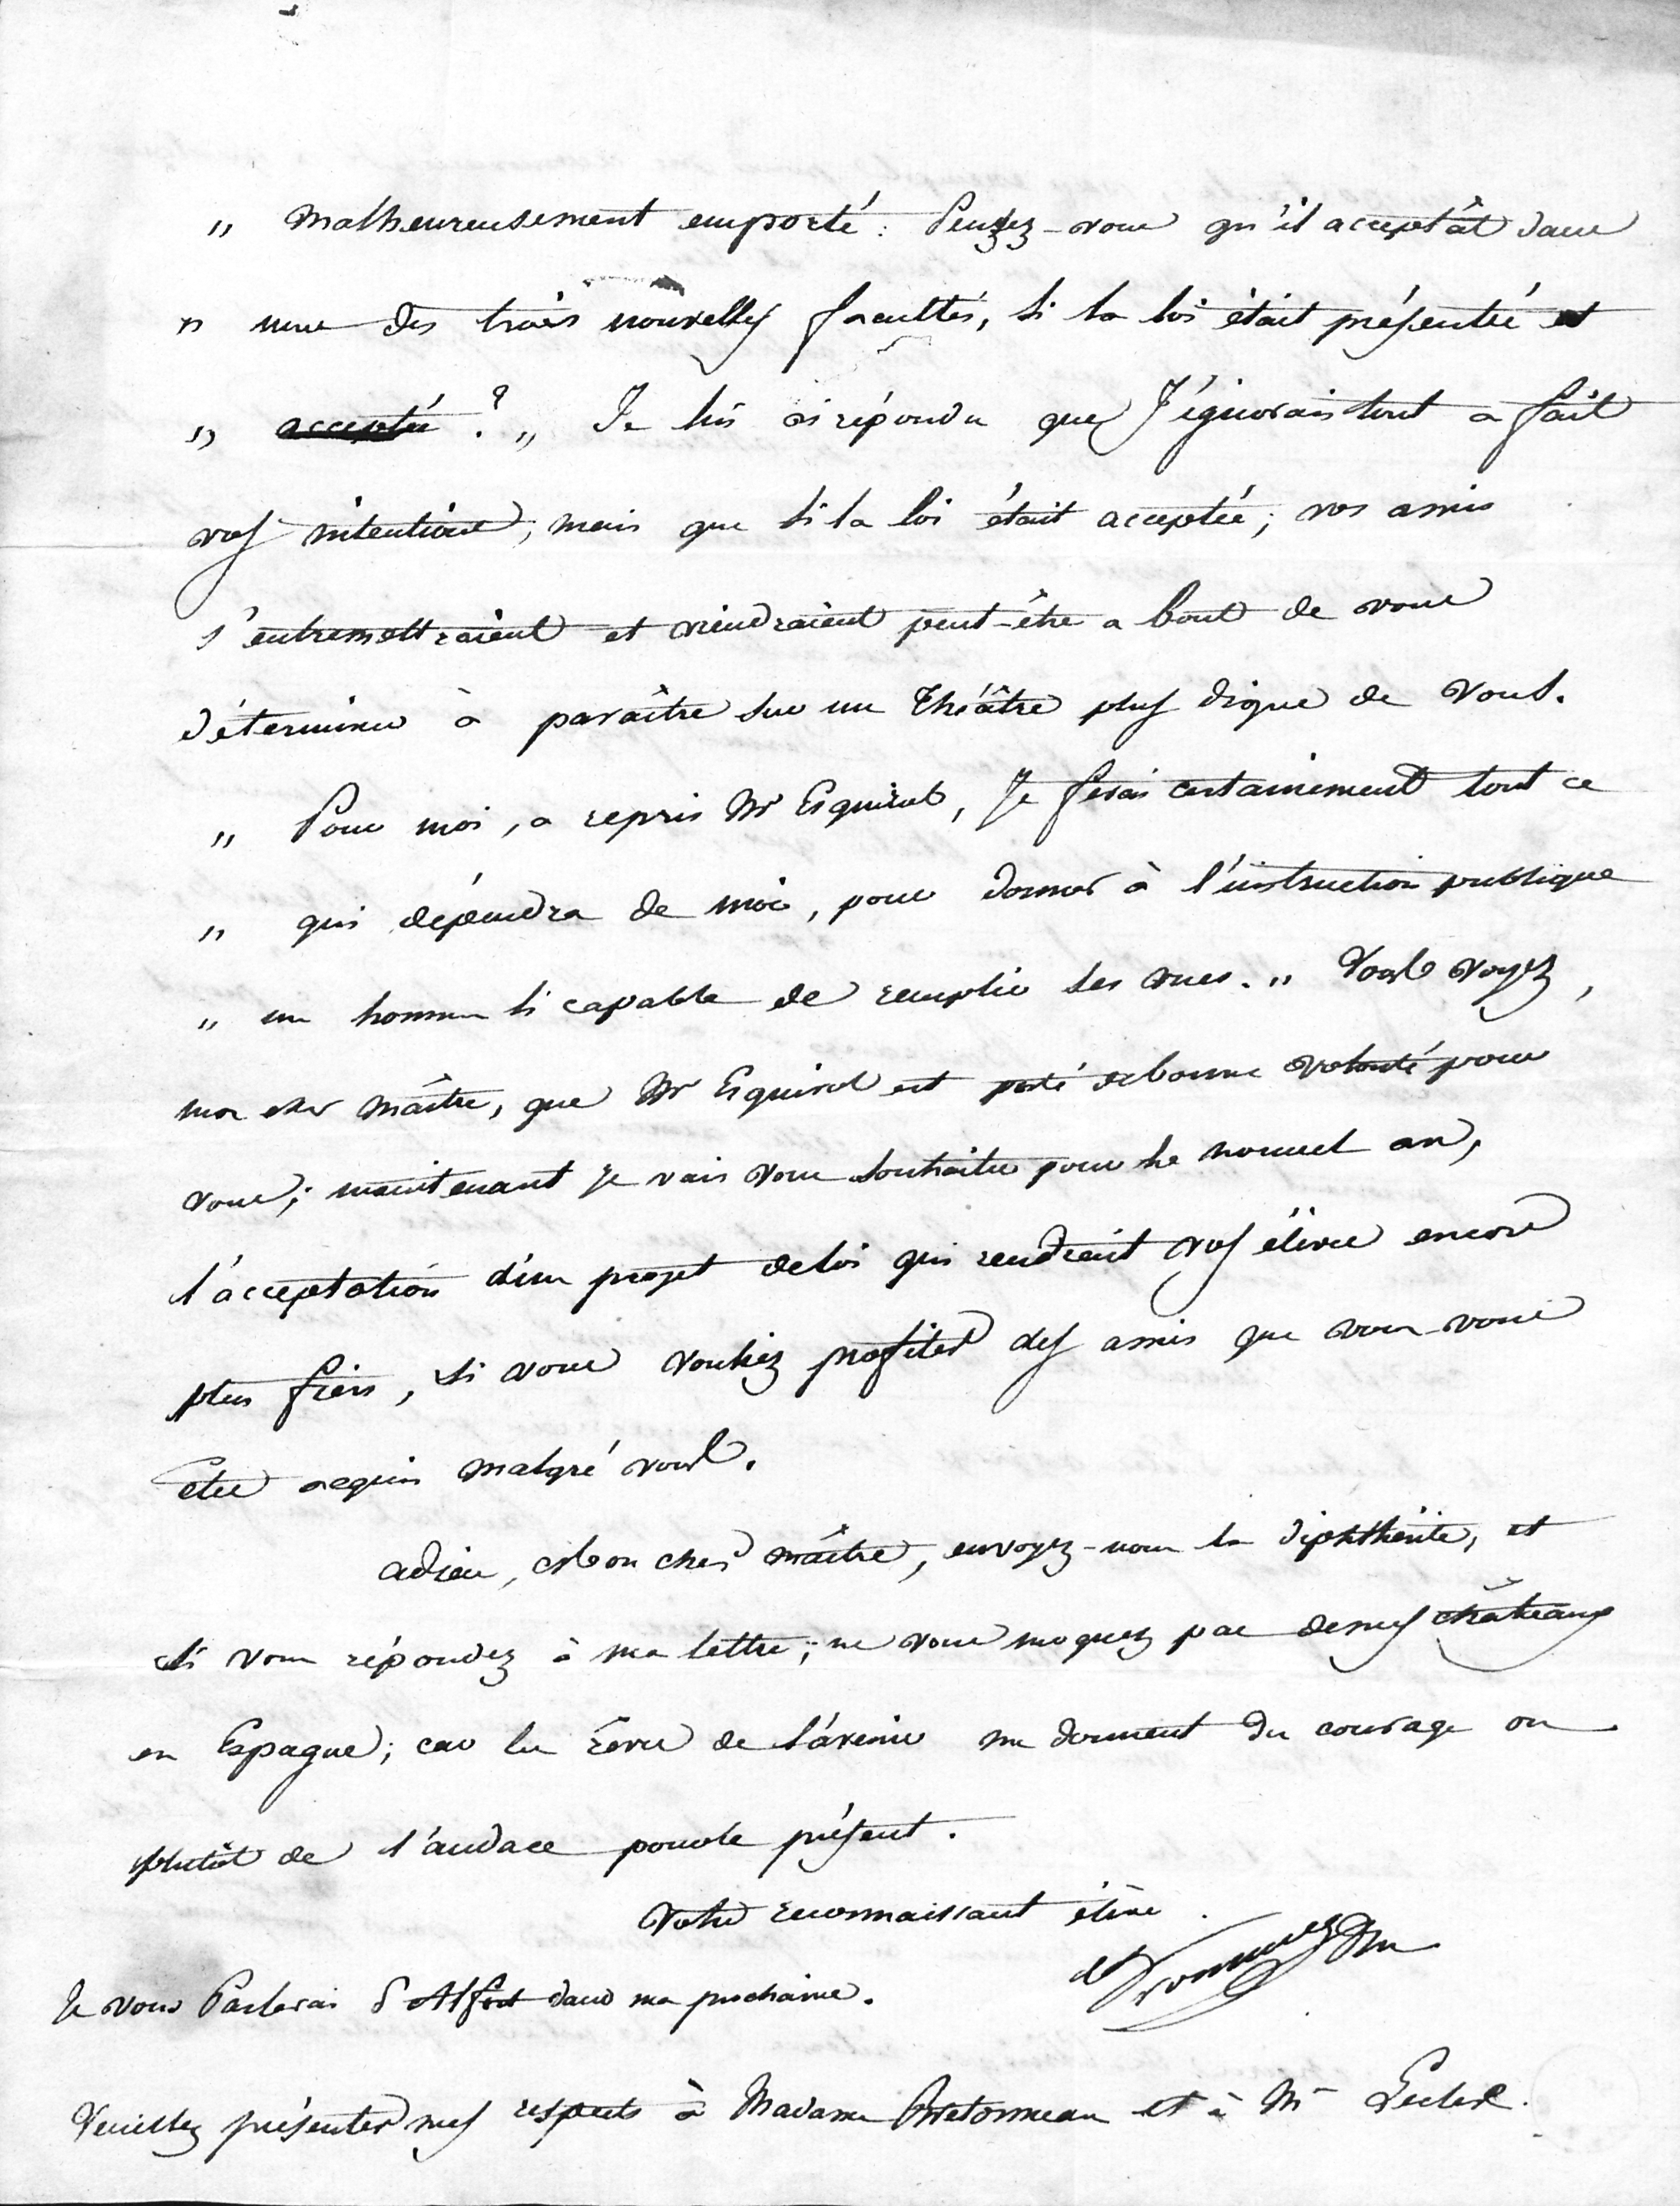 „ malheureusement emporté. Pensez-vous qu'il acceptât dans
„ une des trois nouvelles facultés, si la loi était présentée et
„ acceptée ? „ Je lui ai répondu que j'ignorais tout a fait
vos intentions; mais que si la loi était acceptée; vos amis
s'entremettraient et viendraient peut-être a bout de vous
déterminer à paraître sur un Théâtre plus digne de vous.
„ Pour moi, a repris Mr Esquirol, je ferai certainement tout ce
„ qui dépendra de moi, pour donner à l'instruction publique
„ un homme si capable de remplir ses vues. „ Vous voyez,
mon cher maître, que Mr Esquirol est porté de bonne volonté pour
vous; maintenant je vais vous souhaiter pour le nouvel an,
l'acceptation d'un projet de loi qui rendrait vos élèves encore
plus fiers, si vous vouliez profiter des amis que vous vous
êtes acquis malgré vous.
adieu, mon cher maître, envoyez-nous la diphthérite, et
si vous répondez à ma lettre; ne vous moquez pas de mes châteaux
en Espagne; car les rêves de l'avenir me donnent du courage ou
plutôt de l'audace pour le présent.
Votre reconnaissant élève.
A Trousseau Dm
Je vous Parlerai d'Alfort dans ma prochaine.
Veuillez présenter mes respects à Madame Bretonneau et à Mr Leclerc.